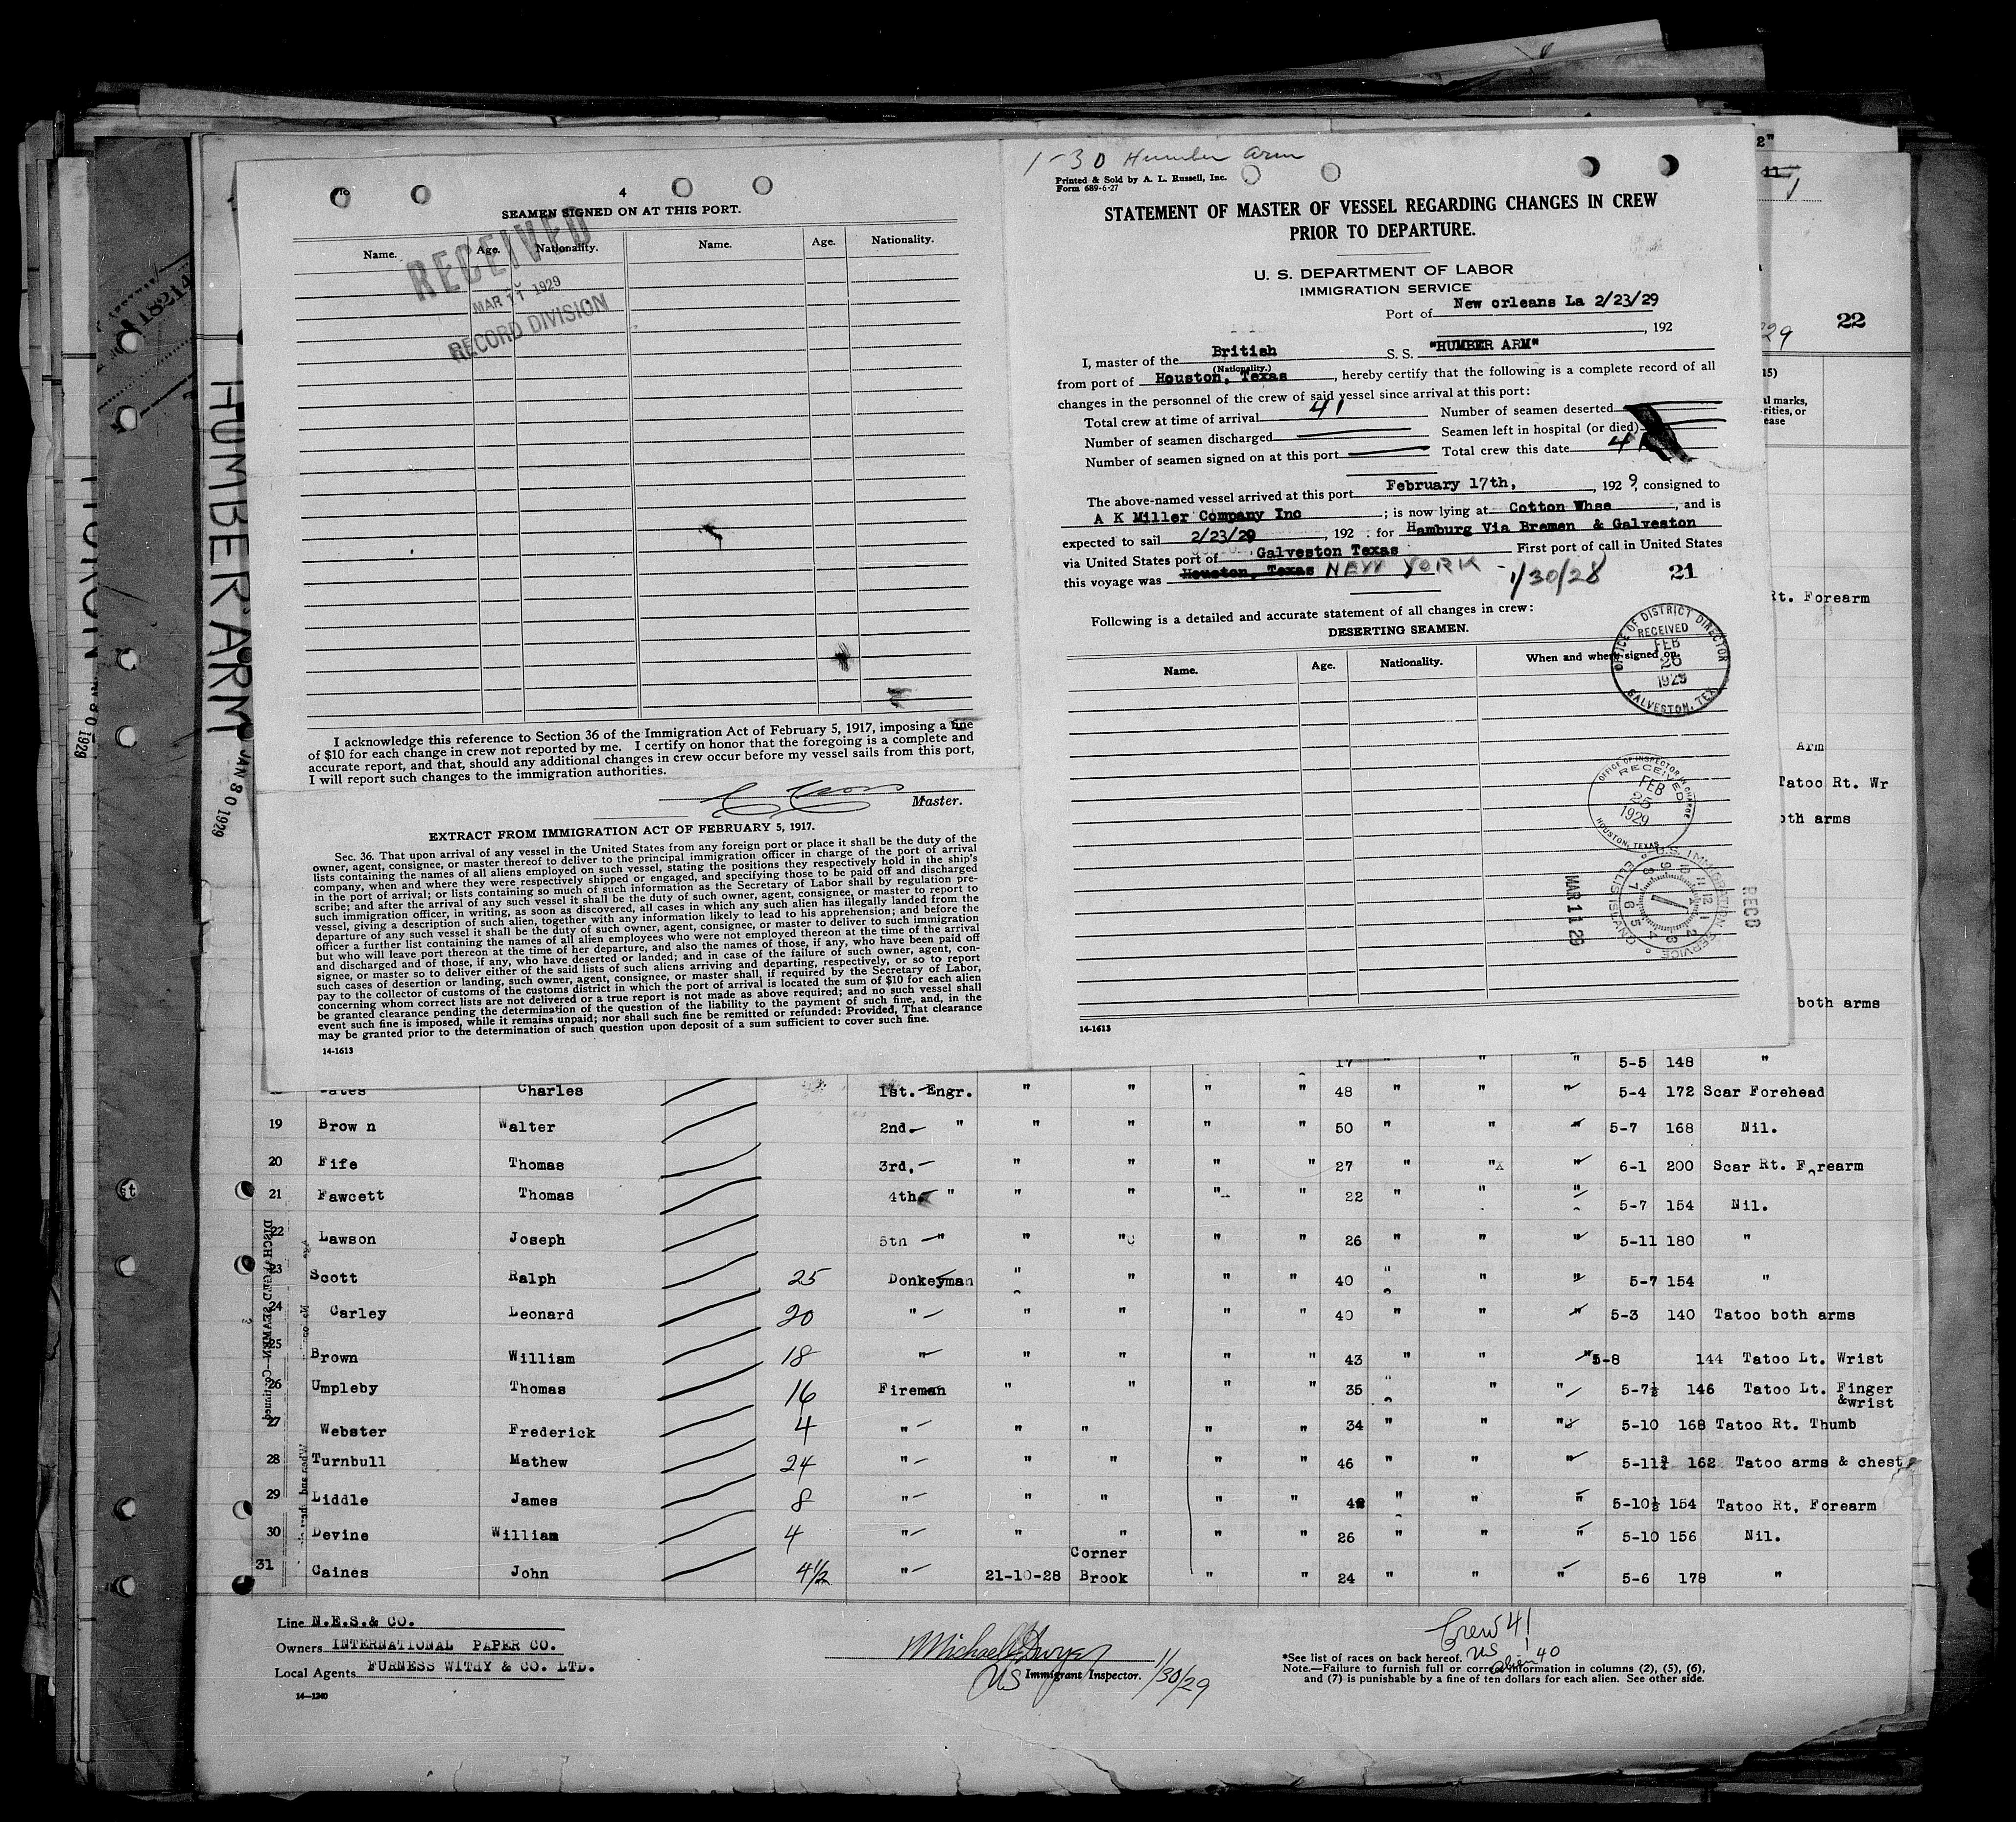 1-30 Humber Arm
4
SEAMEN SIGNED ON AT THIS PORT.
Name. Age. Nationality. Name. Age. Nationality.
RECEIVED
MAR 11 1929
RECORD DIVISION
I acknowledge this reference to Section 36 of the Immigration Act of February 5, 1917, imposing a fine
of $10 for each change in crew not reported by me. I certify on honor that the foregoing is a complete and
accurate report, and that, should any additional changes in crew occur before my vessel sails from this port,
I will report such changes to the immigration authorities.
Master.
EXTRACT FROM IMMIGRATION ACT OF FEBRUARY 5, 1917.
Sec. 36. That upon arrival of any vessel in the United States from any foreign port or place it shall be the duty of the
owner, agent, consignee, or master thereof to deliver to the principal immigration officer in charge of the port of arrival
lists containing the names of all aliens employed on such vessel, stating the positions they respectively hold in the ship's
company, when and where they were respectively shipped or engaged, and specifying those to be paid off and discharged
in the port of arrival; or lists containing so much of such information as the Secretary of Labor shall by regulation pre-
scribe; and after the arrival of any such vessel it shall be the duty of such owner, agent, consignee, or master to report to
such immigration officer, in writing, as soon as discovered, all cases in which any such alien has illegally landed from the
vessel, giving a description of such alien, together with any information likely to lead to his apprehension; and before the
departure of any such vessel it shall be the duty of such owner, agent, consignee, or master to deliver to such immigration
officer a further list containing the names of all alien employees who were not employed thereon at the time of the arrival
but who will leave port thereon at the time of her departure, and also the names of those, if any, who have been paid off
and discharged and of those, if any, who have deserted or landed; and in case of the failure of such owner, agent, con-
signee, or master so to deliver either of the said lists of such aliens arriving and departing, respectively, or so to report
such cases of desertion or landing, such owner, agent, consignee, or master shall, if required by the Secretary of Labor,
pay to the collector of customs of the customs district in which the port of arrival is located the sum of $10 for each alien
concerning whom correct lists are not delivered or a true report is not made as above required; and no such vessel shall
be granted clearance pending the determination of the question of the liability to the payment of such fine, and, in the
event such fine is imposed, while it remains unpaid; nor shall such fine be remitted or refunded: Provided, That clearance
may be granted prior to the determination of such question upon deposit of a sum sufficient to cover such fine.
14-1613
Printed & Sold by A. L. Russell, Inc.
Form 689-6-27
STATEMENT OF MASTER OF VESSEL REGARDING CHANGES IN CREW
PRIOR TO DEPARTURE.
U. S. DEPARTMENT OF LABOR
IMMIGRATION SERVICE
Port of New orleans La 2/23/29
, 192
I, master of the British S. S. "HUMBER ARM"
(Nationality.)
from port of Houston, Texas , hereby certify that the following is a complete record of all
changes in the personnel of the crew of said vessel since arrival at this port:
Total crew at time of arrival 41 Number of seamen deserted
Number of seamen discharged Seamen left in hospital (or died)
Number of seamen signed on at this port Total crew this date 41
The above-named vessel arrived at this port February 17th, , 1929, consigned to
A K Miller Company Inc ; is now lying at Cotton Whse , and is
expected to sail 2/23/29 , 192 : for Hamburg Via Bremen & Galveston
via United States port of Galveston Texas First port of call in United States
this voyage was Houston, Texas NEW YORK - 1/30/28 21
Following is a detailed and accurate statement of all changes in crew:
DESERTING SEAMEN.
Name. Age. Nationality. When and where signed on.
OFFICE OF DISTRICT DIRECTOR
RECEIVED
FEB
26
1929
GALVESTON, TEX
OFFICE OF INSPECTOR IN CHARGE
RECEIVED
FEB
25
1929
HOUSTON, TEXAS
U.S. IMMIGRATION SERVICE
ELLIS ISLAND
MAR 11 29
RECD
14-1613
HUMBER ARM
JAN 30 1929
18214
22
29
Rt. Forearm
Arm
Tatoo Rt. Wr
both arms
both arms
17 " " " 5-5 148 "
Charles 1st. Engr. " " " " 48 " " " 5-4 172 Scar Forehead
19 Brow n Walter 2nd. " " " " " 50 " " " 5-7 168 Nil.
20 Fife Thomas 3rd. " " " " 27 " " " 6-1 200 Scar Rt. Forearm
21 Fawcett Thomas 4th " " " " " 22 " " " 5-7 154 Nil.
22 Lawson Joseph 5th " " " " " 26 " " " 5-11 180 "
23 Scott Ralph 25 Donkeyman " " " " 40 " " " 5-7 154 "
24 Carley Leonard 20 " " " " " 40 " " " 5-3 140 Tatoo both arms
25 Brown William 18 " " " " " 43 " " " 5-8 144 Tatoo Lt. Wrist
26 Umpleby Thomas 16 Fireman " " " " 35 " " " 5-7½ 146 Tatoo Lt. Finger
&wrist
27 Webster Frederick 4 " " " " " 34 " " " 5-10 168 Tatoo Rt. Thumb
28 Turnbull Mathew 24 " " " " " 46 " " " 5-11¾ 162 Tatoo arms & chest
29 Liddle James 8 " " " " " 42 " " " 5-10½ 154 Tatoo Rt. Forearm
30 Devine William 4 " " " " " 26 " " " 5-10 156 Nil.
31 Caines John 4½ " 21-10-28 Corner Brook " " 24 " " " 5-6 178 "
DISCHARGED SEAMEN—Continued
Line N.E.S.& CO.
Owners INTERNATIONAL PAPER CO.
Local Agents FURNESS WITHY & CO. LTD.
14-1240
Michael Dwyer
US Immigrant Inspector. 1/30/29
Crew 41
US 1
alien 40
*See list of races on back hereof.
Note.—Failure to furnish full or correct information in columns (2), (5), (6),
and (7) is punishable by a fine of ten dollars for each alien. See other side.